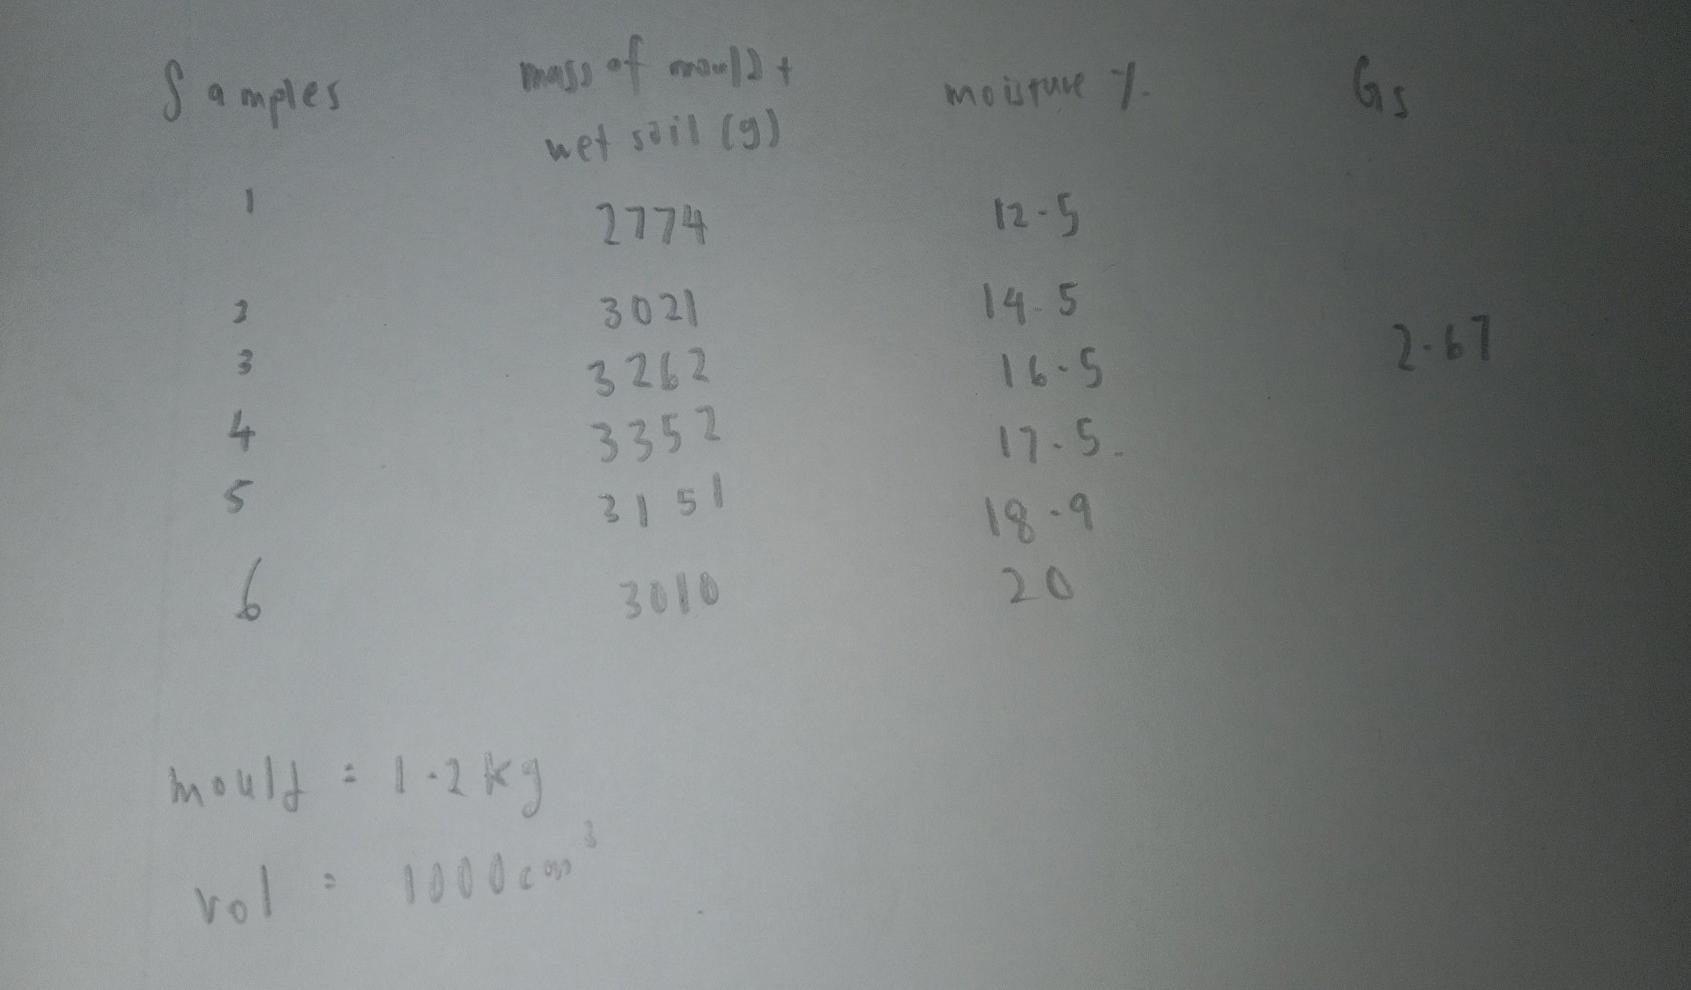 Samples mass of mould + moisture % Gs
wet soil (g)
1 2774 12.5
2 3021 14.5
3 3262 16.5 2.67
4 3352 17.5
5 3151 18.9
6 3010 20
mould = 1.2 kg
vol = 1000 cm³